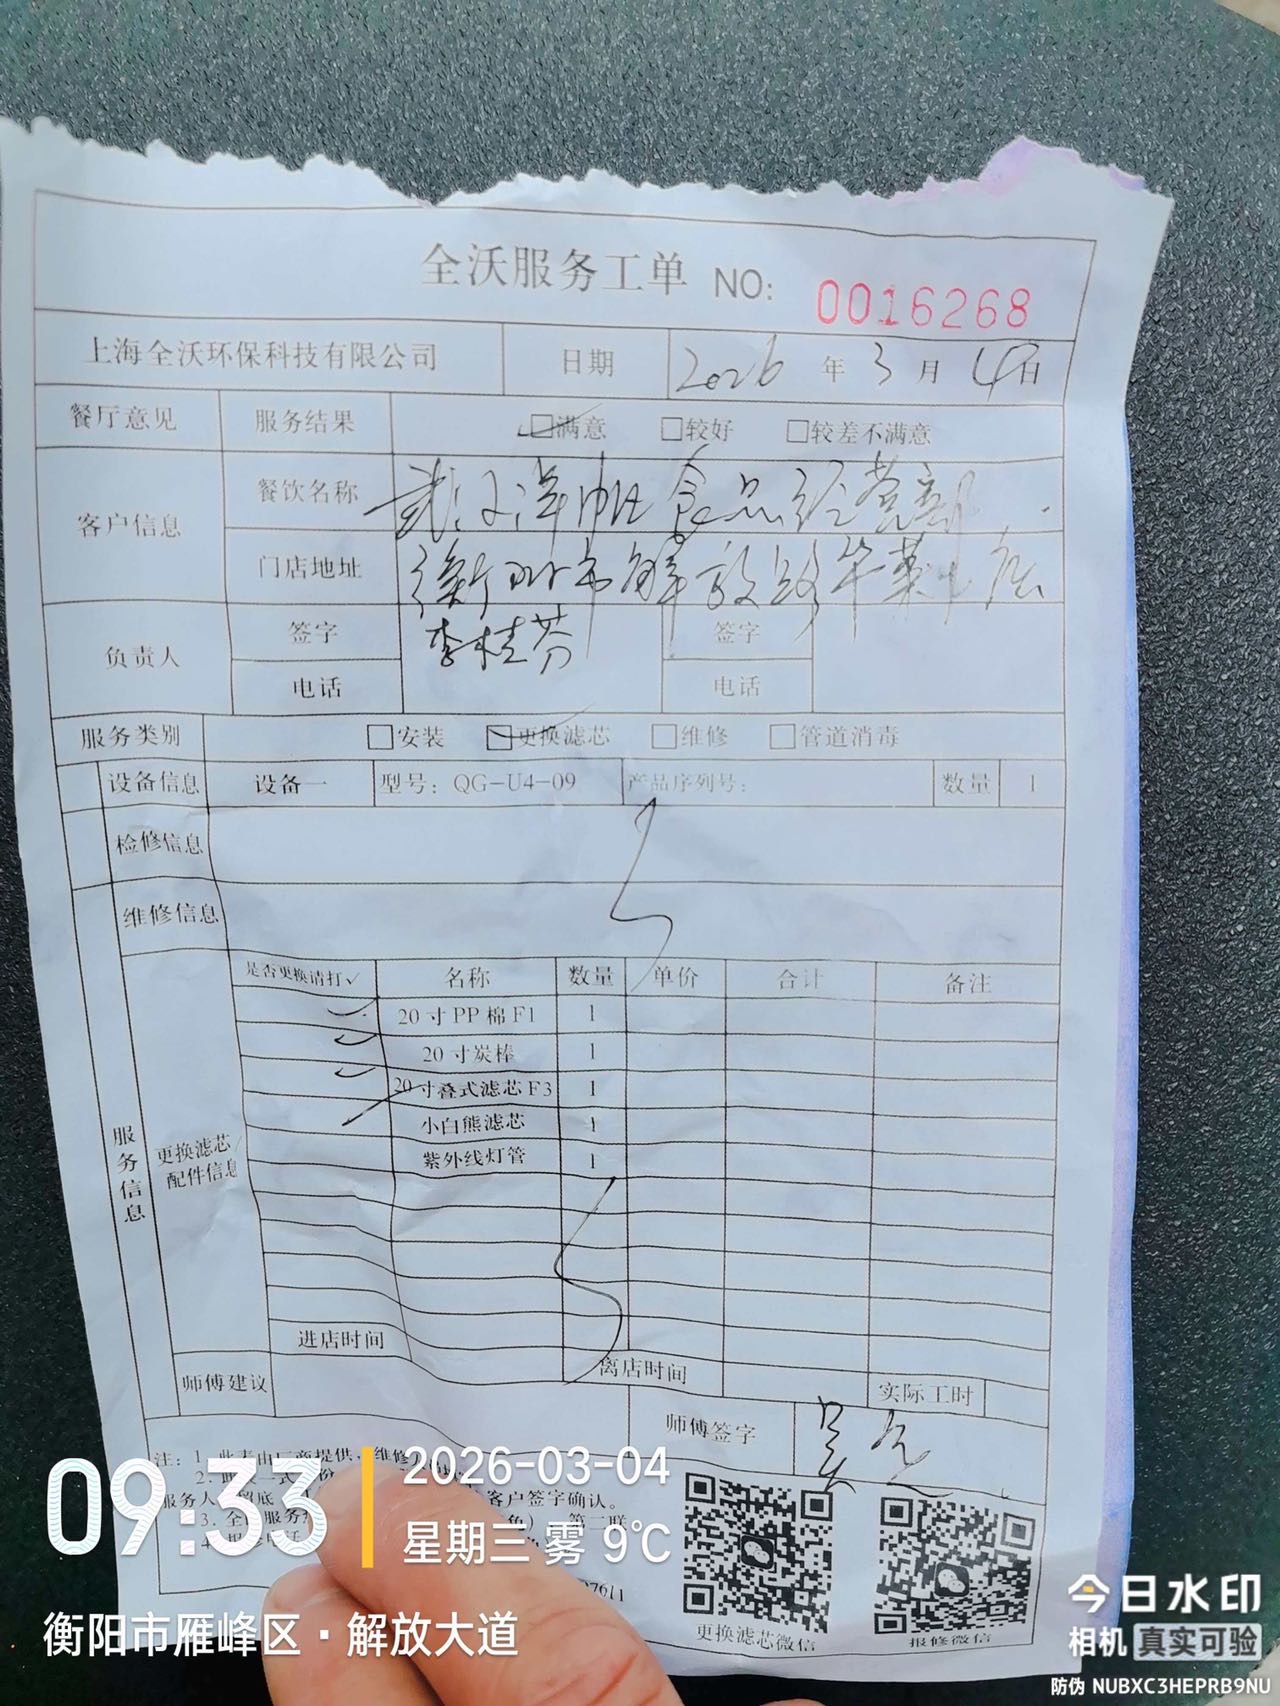 全沃服务工单 NO: 0016268
上海全沃环保科技有限公司 日期 2026 年 3 月 4 日
餐厅意见 服务结果 ☑满意 □较好 □较差不满意
客户信息 餐饮名称 武汉 食品经营部
门店地址 衡阳市解放路华莱士店
负责人 签字 李桂芬 签字
电话 电话
服务类别 □安装 ☑更换滤芯 □维修 □管道消毒
设备信息 设备一 型号: QG-U4-09 产品序列号: 数量 1
检修信息
维修信息
服务信息
更换滤芯/配件信息
是否更换请打✓ 名称 数量 单价 合计 备注
✓ 20寸PP棉F1 1
✓ 20寸炭棒 1
✓ 20寸叠式滤芯F3 1
小白熊滤芯 1
紫外线灯管 1
进店时间 离店时间 实际工时
师傅建议 师傅签字 吴
注: 1. 此表由厂商提供, 维修
2. 此表一式
服务人 留底 客户签字确认。
3. 全 服务 色) 第二联
4. 报修电话
07611
更换滤芯微信 报修微信
09:33 2026-03-04
星期三 雾 9℃
衡阳市雁峰区·解放大道
今日水印
相机 真实可验
防伪 NUBXC3HEPRB9NU